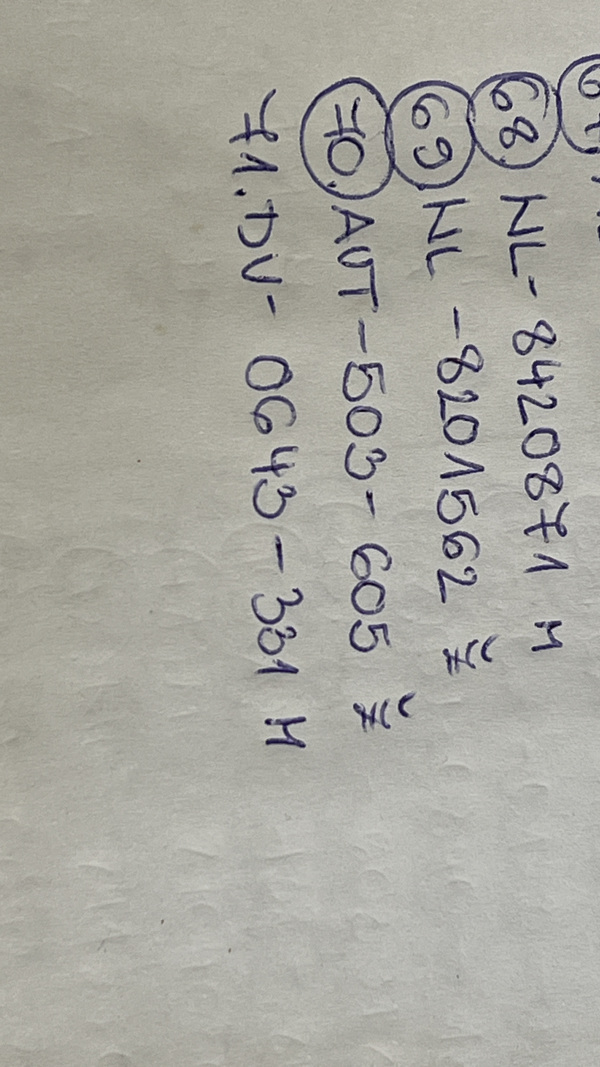 68. NL-8420871 M
69. NL-8201562 Ž
70. AUT-503-605 Ž
71. DV-0643-331 M